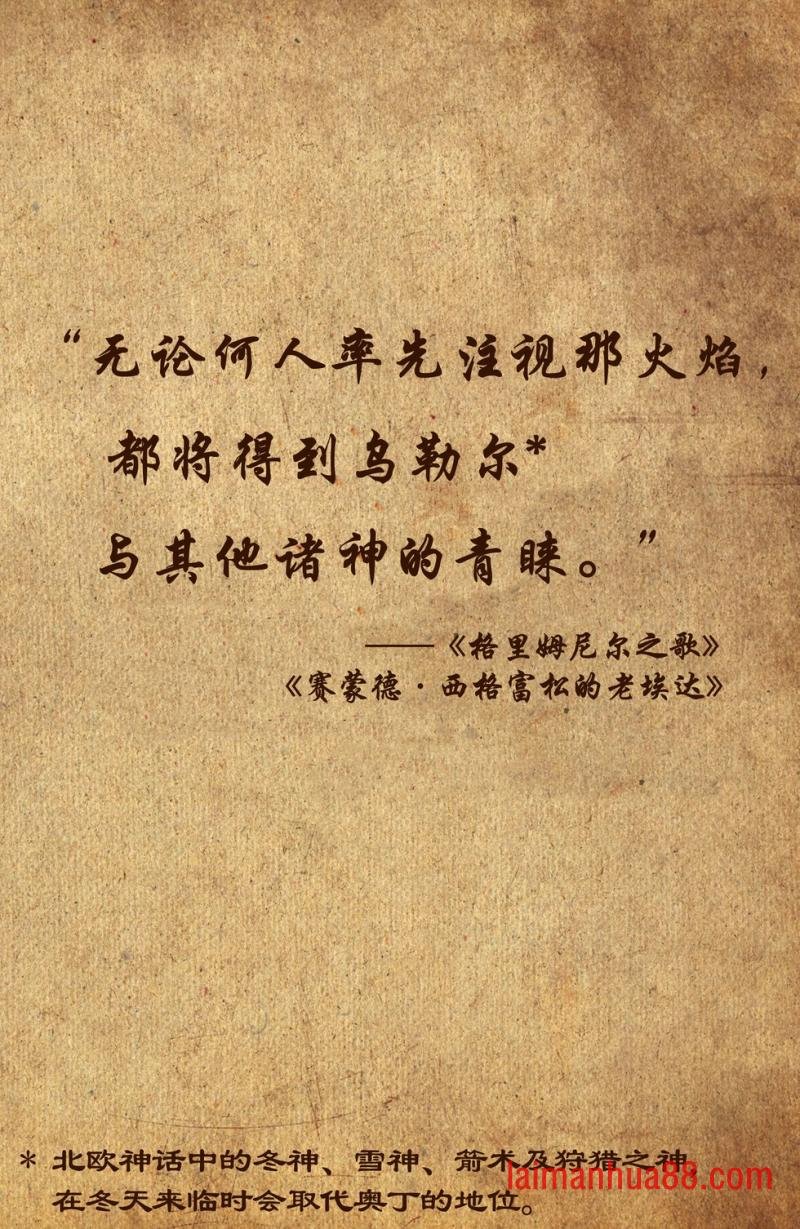 “无论何人率先注视那火焰，
都将得到乌勒尔*
与其他诸神的青睐。”
——《格里姆尼尔之歌》
《赛蒙德·西格富松的老埃达》
* 北欧神话中的冬神、雪神、箭术及狩猎之神，
在冬天来临时会取代奥丁的地位。
laimanhua88.com